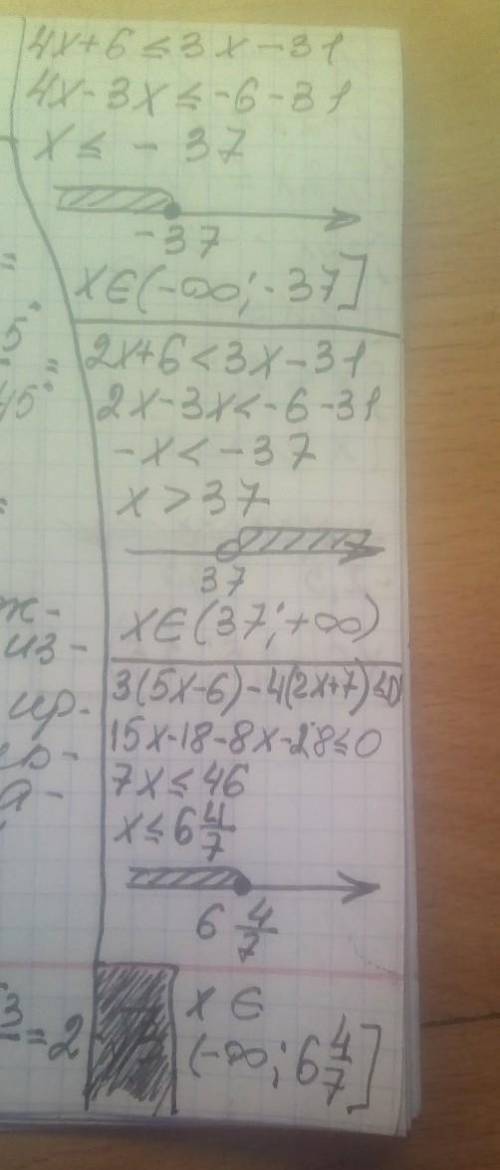 4x+6≤3x-31
4x-3x≤-6-31
x≤-37
-37
x∈(-∞;-37]
2x+6<3x-31
2x-3x<-6-31
-x<-37
x>37
37
x∈(37;+∞)
3(5x-6)-4(2x+7)≤0
15x-18-8x-28≤0
7x≤46
x≤6 4/7
6 4/7
x∈
(-∞;6 4/7]
=
5°
=
45°
=
ж-
из-
ир-
а-
3
=2